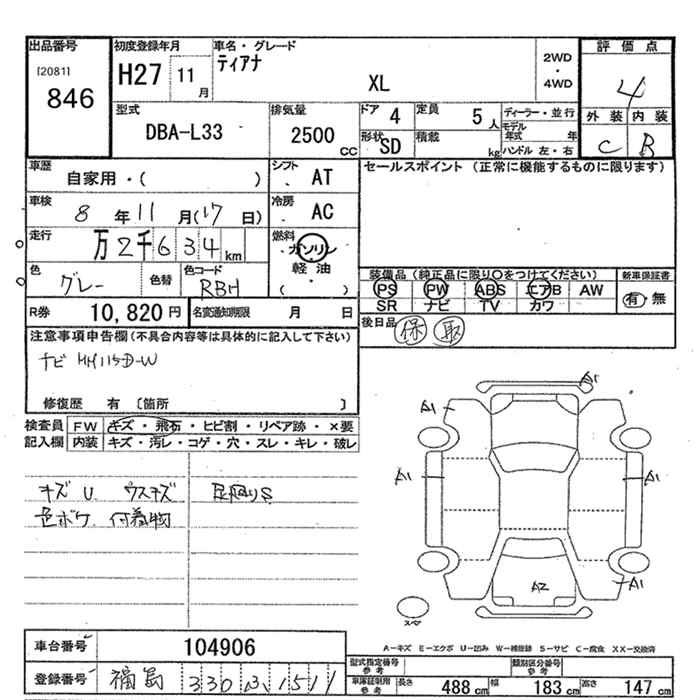 出品番号
[2081]
846
初度登録年月
H27 11 月
車名・グレード
ティアナ
XL
2WD
・
4WD
評価点
4
外装 内装
C B
型式
DBA-L33
排気量
2500 CC
ドア 4
定員 5 人
ディーラー・並行
モデル年式 年
形状 SD
積載 kg
ハンドル 左・右
車歴
自家用・( )
シフト
・ AT
セールスポイント (正常に機能するものに限ります)
車検
8 年 11 月(17 日)
冷房
・ AC
走行
万 2千 6 3 4 km
燃料
・ガソリン
軽油・
( )
色
グレー
色替
色コード
RBH
装備品 (純正品に限り○をつけてください)
PS PW ABS エアB AW
SR ナビ TV カワ
新車保証書
有・無
R券 10,820 円
名変通知期限 月 日
後日品
保 取
注意事項申告欄(不具合内容等は具体的に記入して下さい)
ナビ HM115D-W
修復歴 有 〔箇所 〕
検査員 FW キズ・飛石・ヒビ割・リペア跡・×要
記入欄 内装 キズ・汚レ・コゲ・穴・スレ・キレ・破レ
キズ U ウスキズ
色ボケ 付着物
足回りS
A1
A1
A1
A1
A1
A2
A1
スペ
A-キズ E-エクボ U-凹み W-補修跡 S-サビ C-腐食 XX-交換済
車台番号 104906
登録番号 福島 330 1511
型式指定番号 参考
類別区分番号 参考
車庫証明用 参考
長さ 488 cm 幅 183 cm 高さ 147 cm